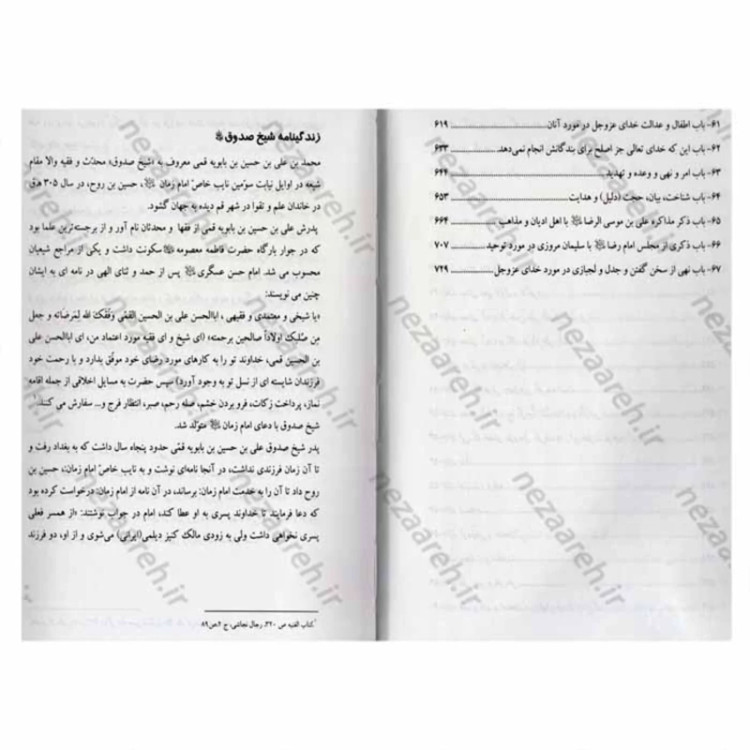 ۶۱- باب اطفال و عدالت خدای عزوجل در مورد آنان ۶۱۹
۶۲- باب این که خدای تعالی جز اصلح برای بندگانش انجام نمی‌دهد. ۶۳۳
۶۳- باب امر و نهی و وعده و تهدید. ۶۴۴
۶۴- باب شناخت، بیان، حجت (دلیل) و هدایت ۶۵۳
۶۵- باب ذکر مذاکره علی بن موسی الرضا با اهل ادیان و مذاهب ۶۶۴
۶۶- باب ذکری از مجلس امام رضا با سلیمان مروزی در مورد توحید ۷۰۷
۶۷- باب نهی از سخن گفتن و جدل و لجبازی در مورد خدای عزوجل ۷۲۹
زندگینامه شیخ صدوق
محمد بن علی بن حسین بن بابویه قمی معروف به «شیخ صدوق» محدّث و فقیه والا مقام
شیعه در اوایل نیابت سوّمین نایب خاصّ امام زمان، حسین بن روح، در سال ۳۰۵ ه‍.ق
در خاندان علم و تقوا در شهر قم دیده به جهان گشود.
پدرش علی بن حسین بن بابویه قمی از فقها و محدثان نام آور و از برجسته‌ترین علما بود
که در جوار بارگاه حضرت فاطمه معصومه سکونت داشت و یکی از مراجع شیعیان
محسوب می شد. امام حسن عسگری پس از حمد و ثنای الهی در نامه ای به ایشان
چنین می نویسند:
«یا شیخی و معتمدی و فقیهی، اباالحسن علی بن الحسین القمّی وفّقک الله لمرضاته و جعل
من صلبک اولاداً صالحین برحمته» (ای شیخ و ای فقیه مورد اعتماد من، ای اباالحسن علی
بن الحسین قمی، خداوند تو را به کارهای مورد رضای خود موفّق بدارد و با رحمت خود
فرزندان شایسته ای از نسل تو به وجود آورد) سپس حضرت به مسایل اخلاقی از جمله اقامه
نماز، پرداخت زکات، فرو بردن خشم، صله رحم، صبر، انتظار فرج و... سفارش می کنند.
شیخ صدوق با دعای امام زمان متولّد شد.
پدر شیخ صدوق علی بن حسین بن بابویه قمّی حدود پنجاه سال داشت که به بغداد رفت و
تا آن زمان فرزندی نداشت، در آنجا نامه‌ای نوشت و به نایب خاصّ امام زمان؛ حسین بن
روح داد تا آن را به خدمت امام زمان: برساند، در آن نامه از امام زمان: درخواست کرده بود
که دعا فرمایند تا خداوند پسری به او عطا کند، امام در جواب نوشتند: «از همسر فعلی
پسری نخواهی داشت ولی به زودی مالک کنیز دیلمی(ایرانی) می‌شوی و از او، دو فرزند
کتاب الغیبه ص ۳۲۰، رجال نجاشی، ج ۲ص۸۹
nezaareh.ir
nezaareh.ir
nezaareh.ir
nezaareh.ir
nezaareh.ir
nezaareh.ir